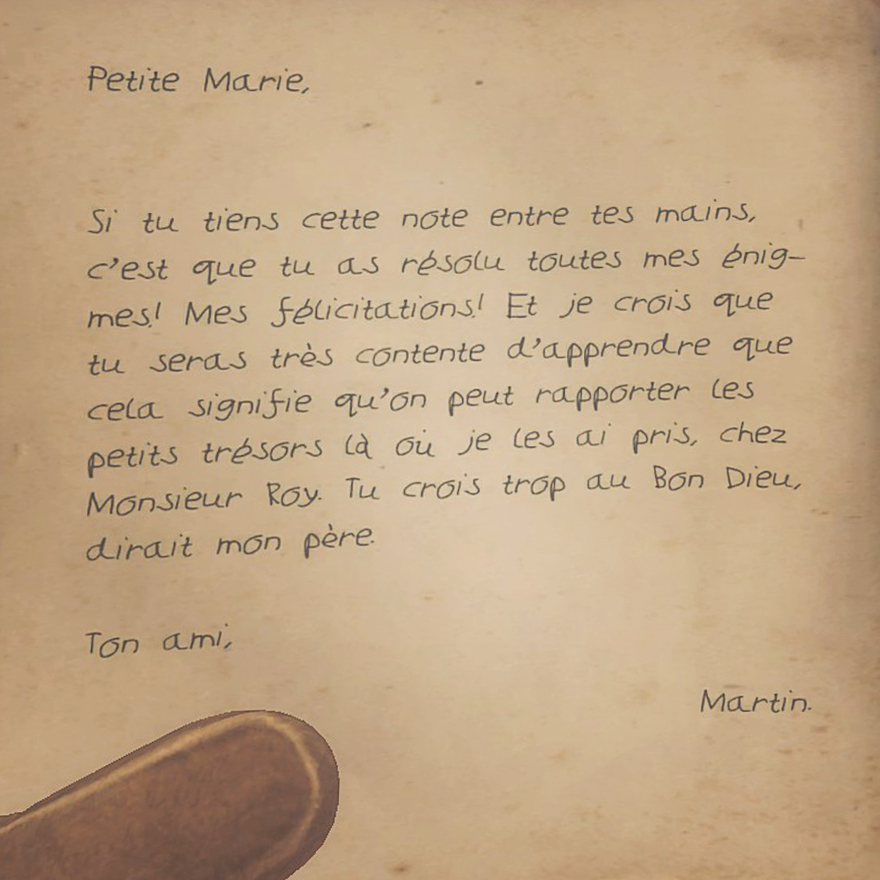 Petite Marie,
Si tu tiens cette note entre tes mains,
c'est que tu as résolu toutes mes énig-
mes! Mes félicitations! Et je crois que
tu seras très contente d'apprendre que
cela signifie qu'on peut rapporter les
petits trésors là où je les ai pris, chez
Monsieur Roy. Tu crois trop au Bon Dieu,
dirait mon père.
Ton ami,
Martin.